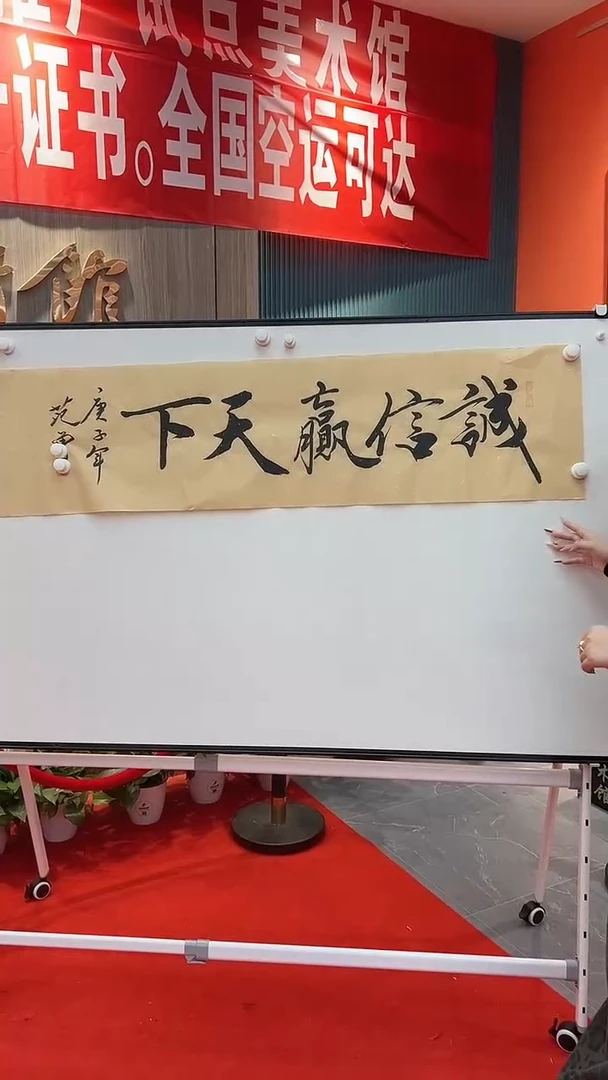 试点美术馆
证书。全国空运可达
館
誠信贏天下
庚子年
范